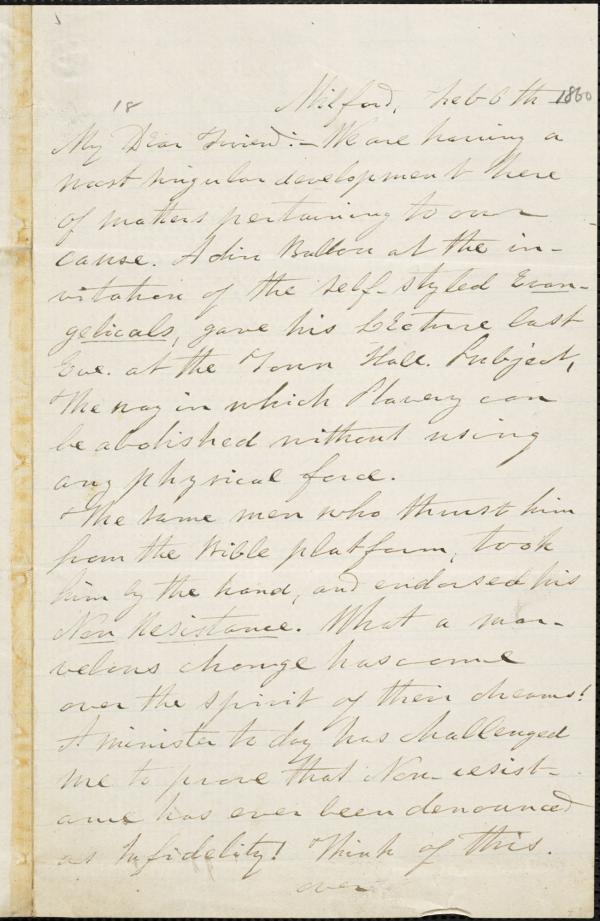 18 Milford, Feb 6th 1860
My Dear Friend:- We are having a
most singular development here
of matters pertaining to our
cause. Adin Ballou at the in-
vitation of the self-styled Evan-
gelicals, gave his Lecture last
Eve. at the Town Hall. Subject,
The way in which Slavery can
be abolished without using
any physical force.
The same men who thrust him
from the Bible platform, took
him by the hand, and endorsed his
Non Resistance. What a mar-
velous change has come
over the spirit of their dreams!
A minister to day has challenged
me to prove that Non-resist-
ance has ever been denounced
as Infidelity! Think of this.
over